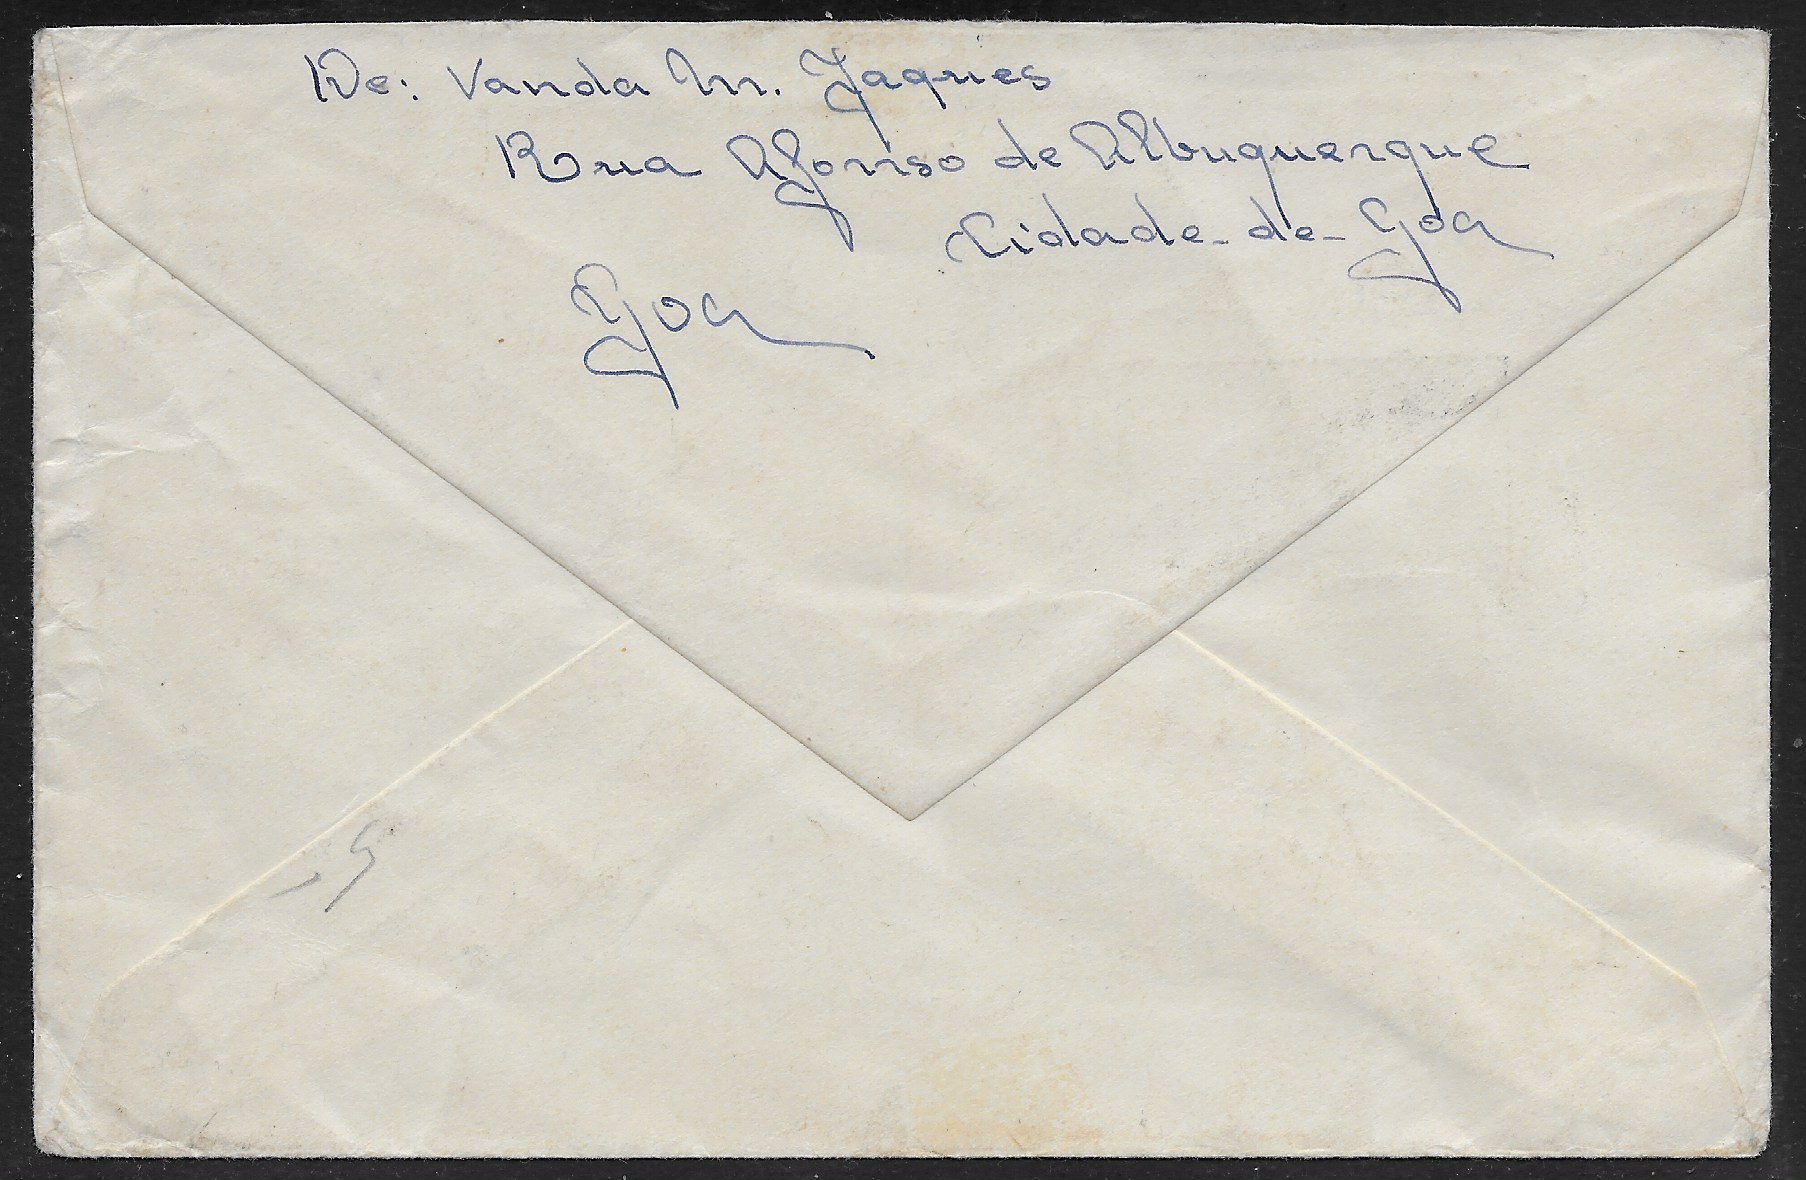 De: Vanda M. Jaques
Rua Afonso de Albuquerque
Cidade-de-Goa
Goa